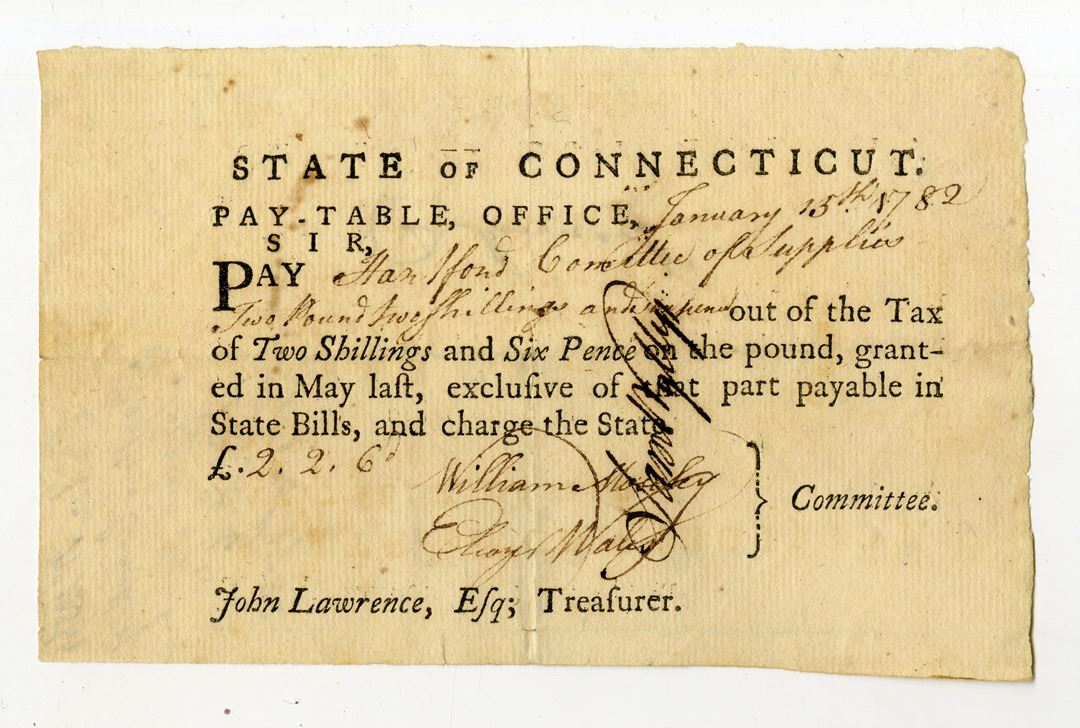 STATE OF CONNECTICUT.
PAY-TABLE, OFFICE, January 15th 1782
SIR,
PAY Hartford Comittee of Supplies
Two Pound two Shillings and six pence out of the Tax
of Two Shillings and Six Pence on the pound, grant-
ed in May laſt, excluſive of that part payable in
State Bills, and charge the State.
£.2.2.6d
William Moseley
Wales
Committee.
John Lawrence, Eſq; Treaſurer.